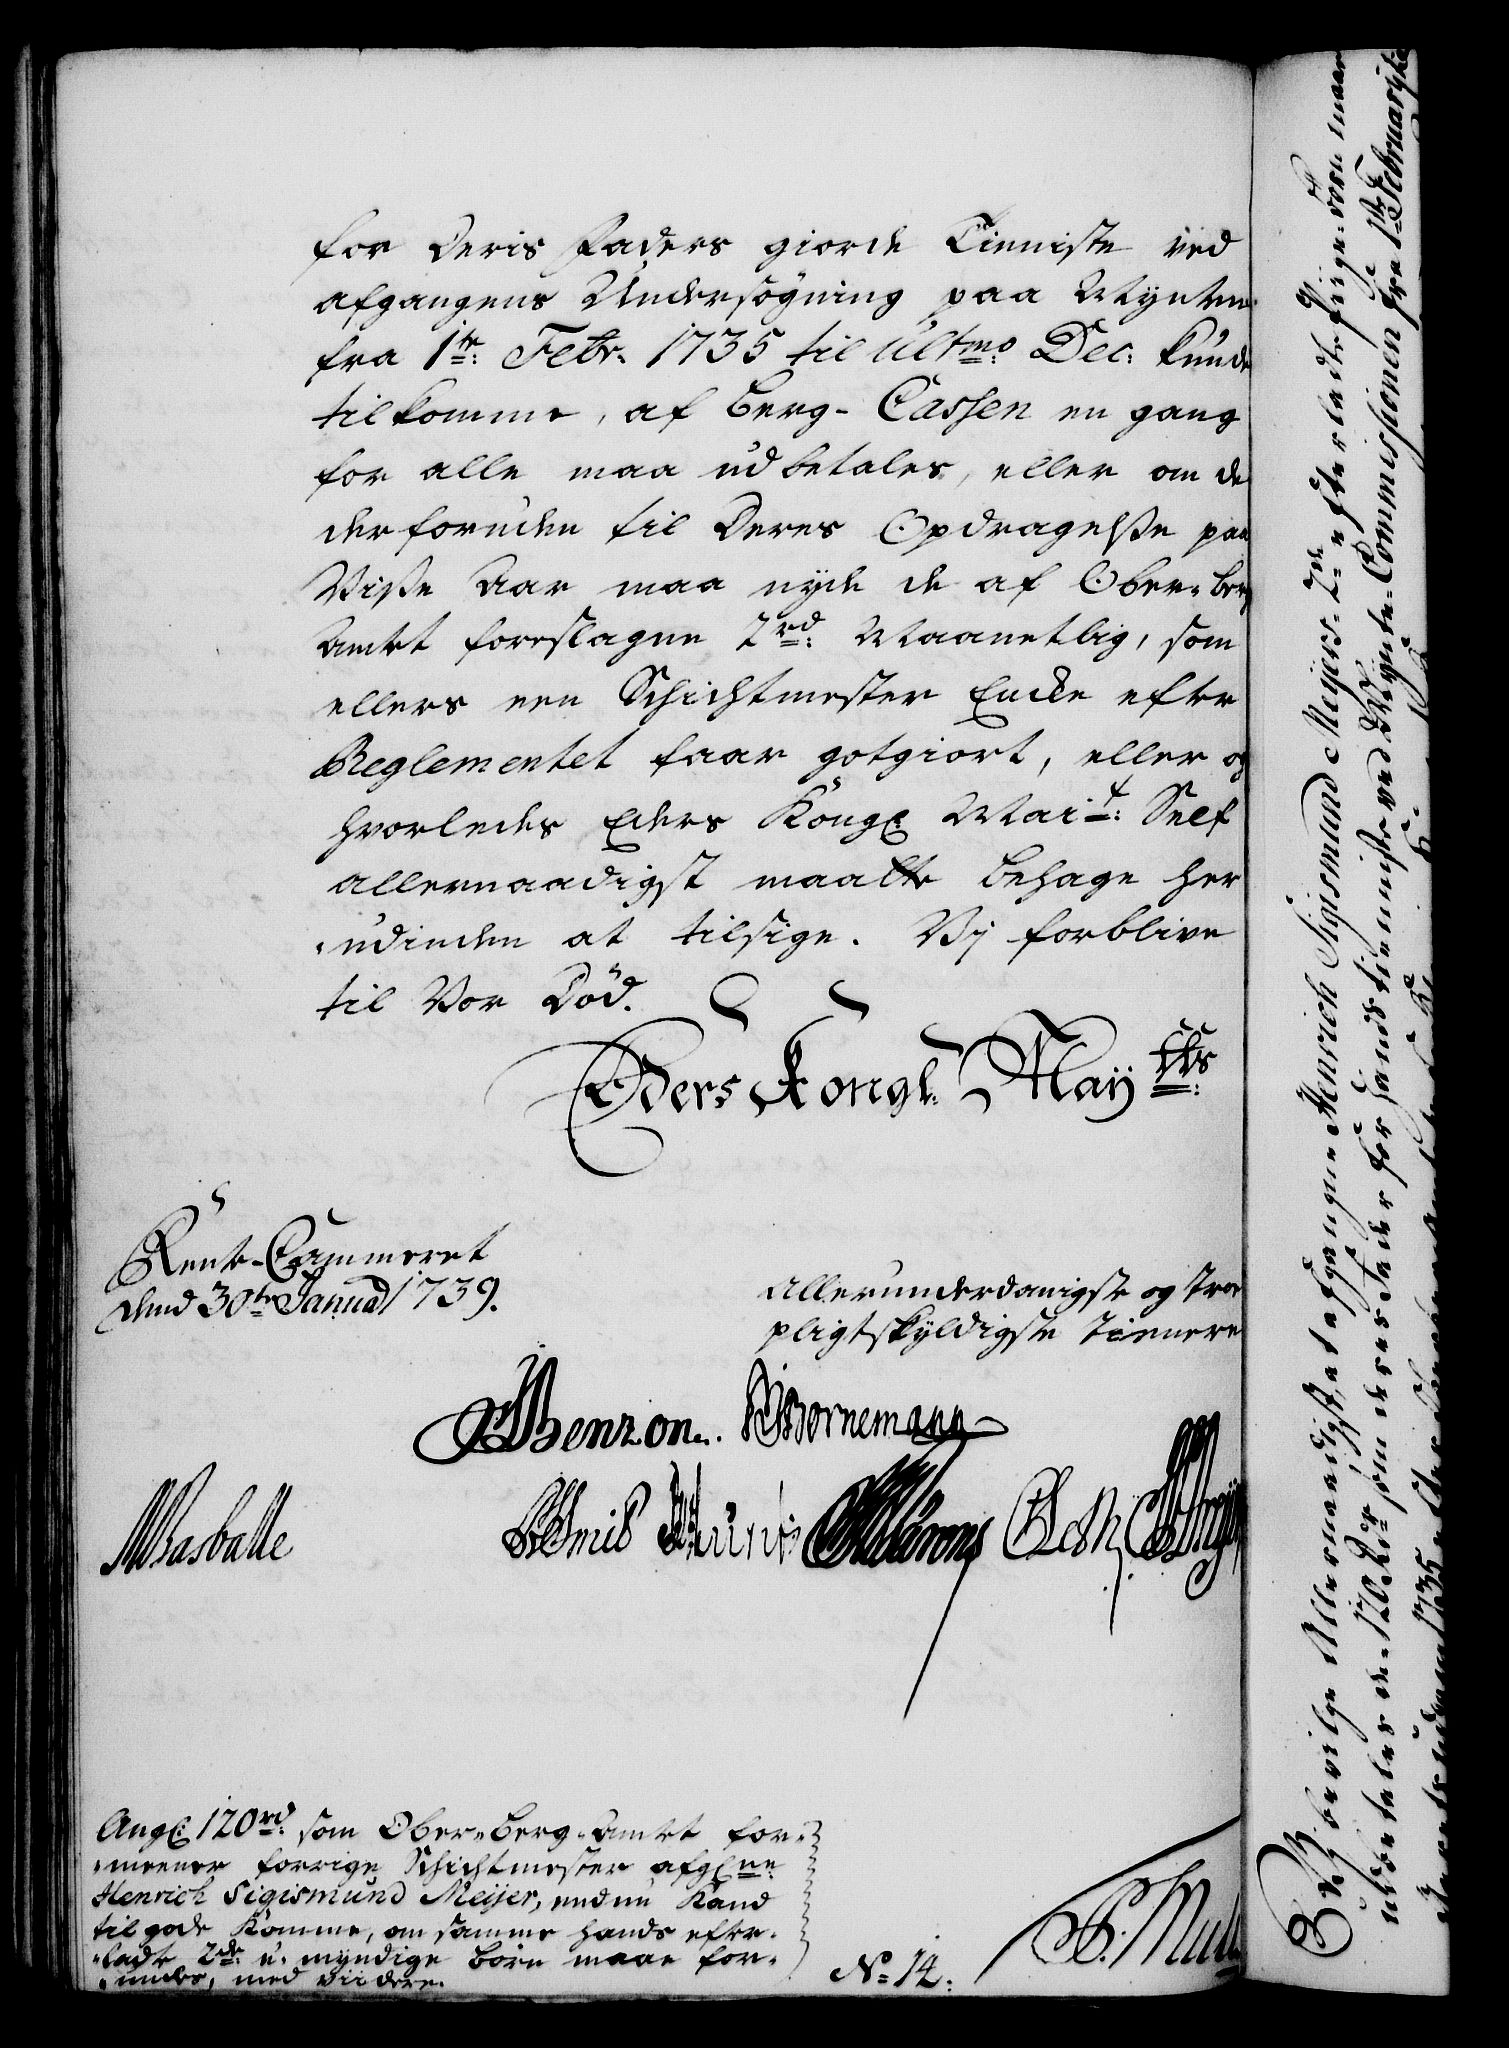 for Deris Faders giorde Tienniste ved
afgangens Undersøgning paa Mynten
fra 1te: Febr. 1735 til Ultmo: Dec: kunde
tilkomme, af Berg-Cassen en gang
for alle maa udbetales, eller om de
derforuden til Deres Opdragelsse paa
Visse Aar maa nyde de af Ober-berg
Amtet foreslagne 2 rd: Maanetlig, som
ellers een Schichtmester Encke efter
Reglementet faar gotgiort, eller og
hvorledes Eders Kongl: Mait: Self
allernaadigst maatte behage her
udinden at tilsige. Vij forblive
til Vor Død.
Eders Kongl. Mayts:
Rente-Cammeret
dend 30te Januarj 1739.
Allerunderdanigste og troe
pligtskyldigste Tienere
Benzon. Bornemann
Basballe
Angl: 120 rd: som Ober-Berg-Amtet for-
meener forrige Schichtmester afgl:ne
Henrich Sigismund Meijer, endnu Kand
til gode Komme, om samme hands efter-
ladte 2de u-myndige Børn maae for-
undes, med viidere.
No 14:
Vj bevilge Allernaadigst, at afgangne Henrich Sigismund Meyers 2de efterladte fige-børn maae
udbetales de 120 Rdr: som deres Fader for hands tienniste ved Mynte-Commissionen fra 1te Februarij